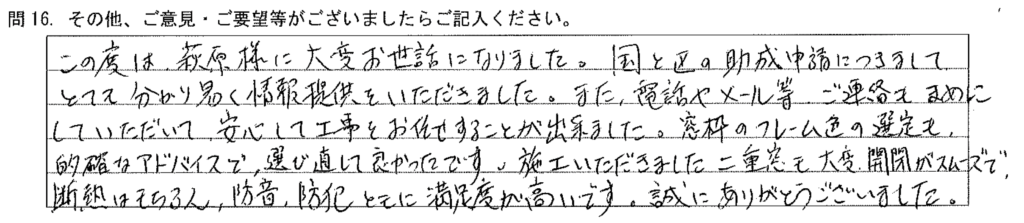 問16. その他、ご意見・ご要望等がございましたらご記入ください。
この度は、萩原様に大変お世話になりました。国と区の助成申請につきまして、
とても分かり易く情報提供をいただきました。また、電話やメール等、ご連絡もまめに
していただいて、安心して工事をお任せすることが出来ました。窓枠のフレーム色の選定も、
的確なアドバイスで、選び直して良かったです。施工いただきました二重窓も大変、開閉がスムーズで、
断熱はもちろん、防音、防犯ともに満足度が高いです。誠にありがとうございました。